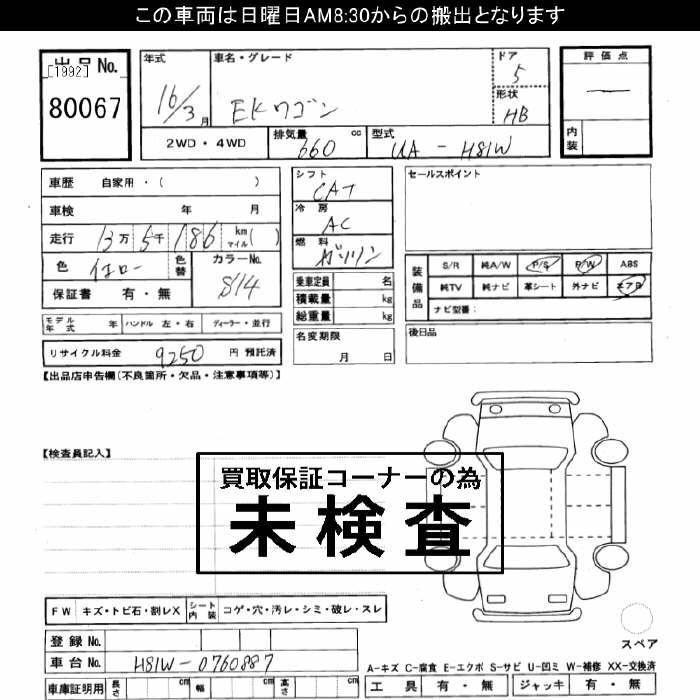 この車両は日曜日AM8:30からの搬出となります
出品 No.
[1992]
80067
年式
16/3月
車名・グレード
EKワゴン
ドア
5
形状
HB
評価点
内装
2WD・4WD
排気量 660 cc
型式 UA - H81W
車歴 自家用・( )
車検 年 月
走行 13万 5千 186 km マイル( )
色 イエロー 色替 カラーNo. S14
保証書 有・無
シフト CAT
冷房 AC
燃料 ガソリン
乗車定員 名
積載量 kg
総重量 kg
セールスポイント
装備品 S/R 純A/W P/S P/W ABS
純TV 純ナビ 革シート 外ナビ エアB
ナビ型番:
モデル年式 年 ハンドル 左・右 ディーラー・並行
リサイクル料金 9250 円 預託済
名変期限
月 日
後日品
【出品店申告欄(不良箇所・欠品・注意事項等)】
【検査員記入】
買取保証コーナーの為
未検査
FW キズ・トビ石・割レX シート内装 コゲ・穴・汚レ・シミ・破レ・スレ
登録 No.
車台 No. H81W-0760887
車庫証明用 長さ cm 幅 cm 高さ cm
スペア
A-キズ C-腐食 E-エクボ S-サビ U-凹ミ W-補修 XX-交換済
工具 有・無 ジャッキ 有・無